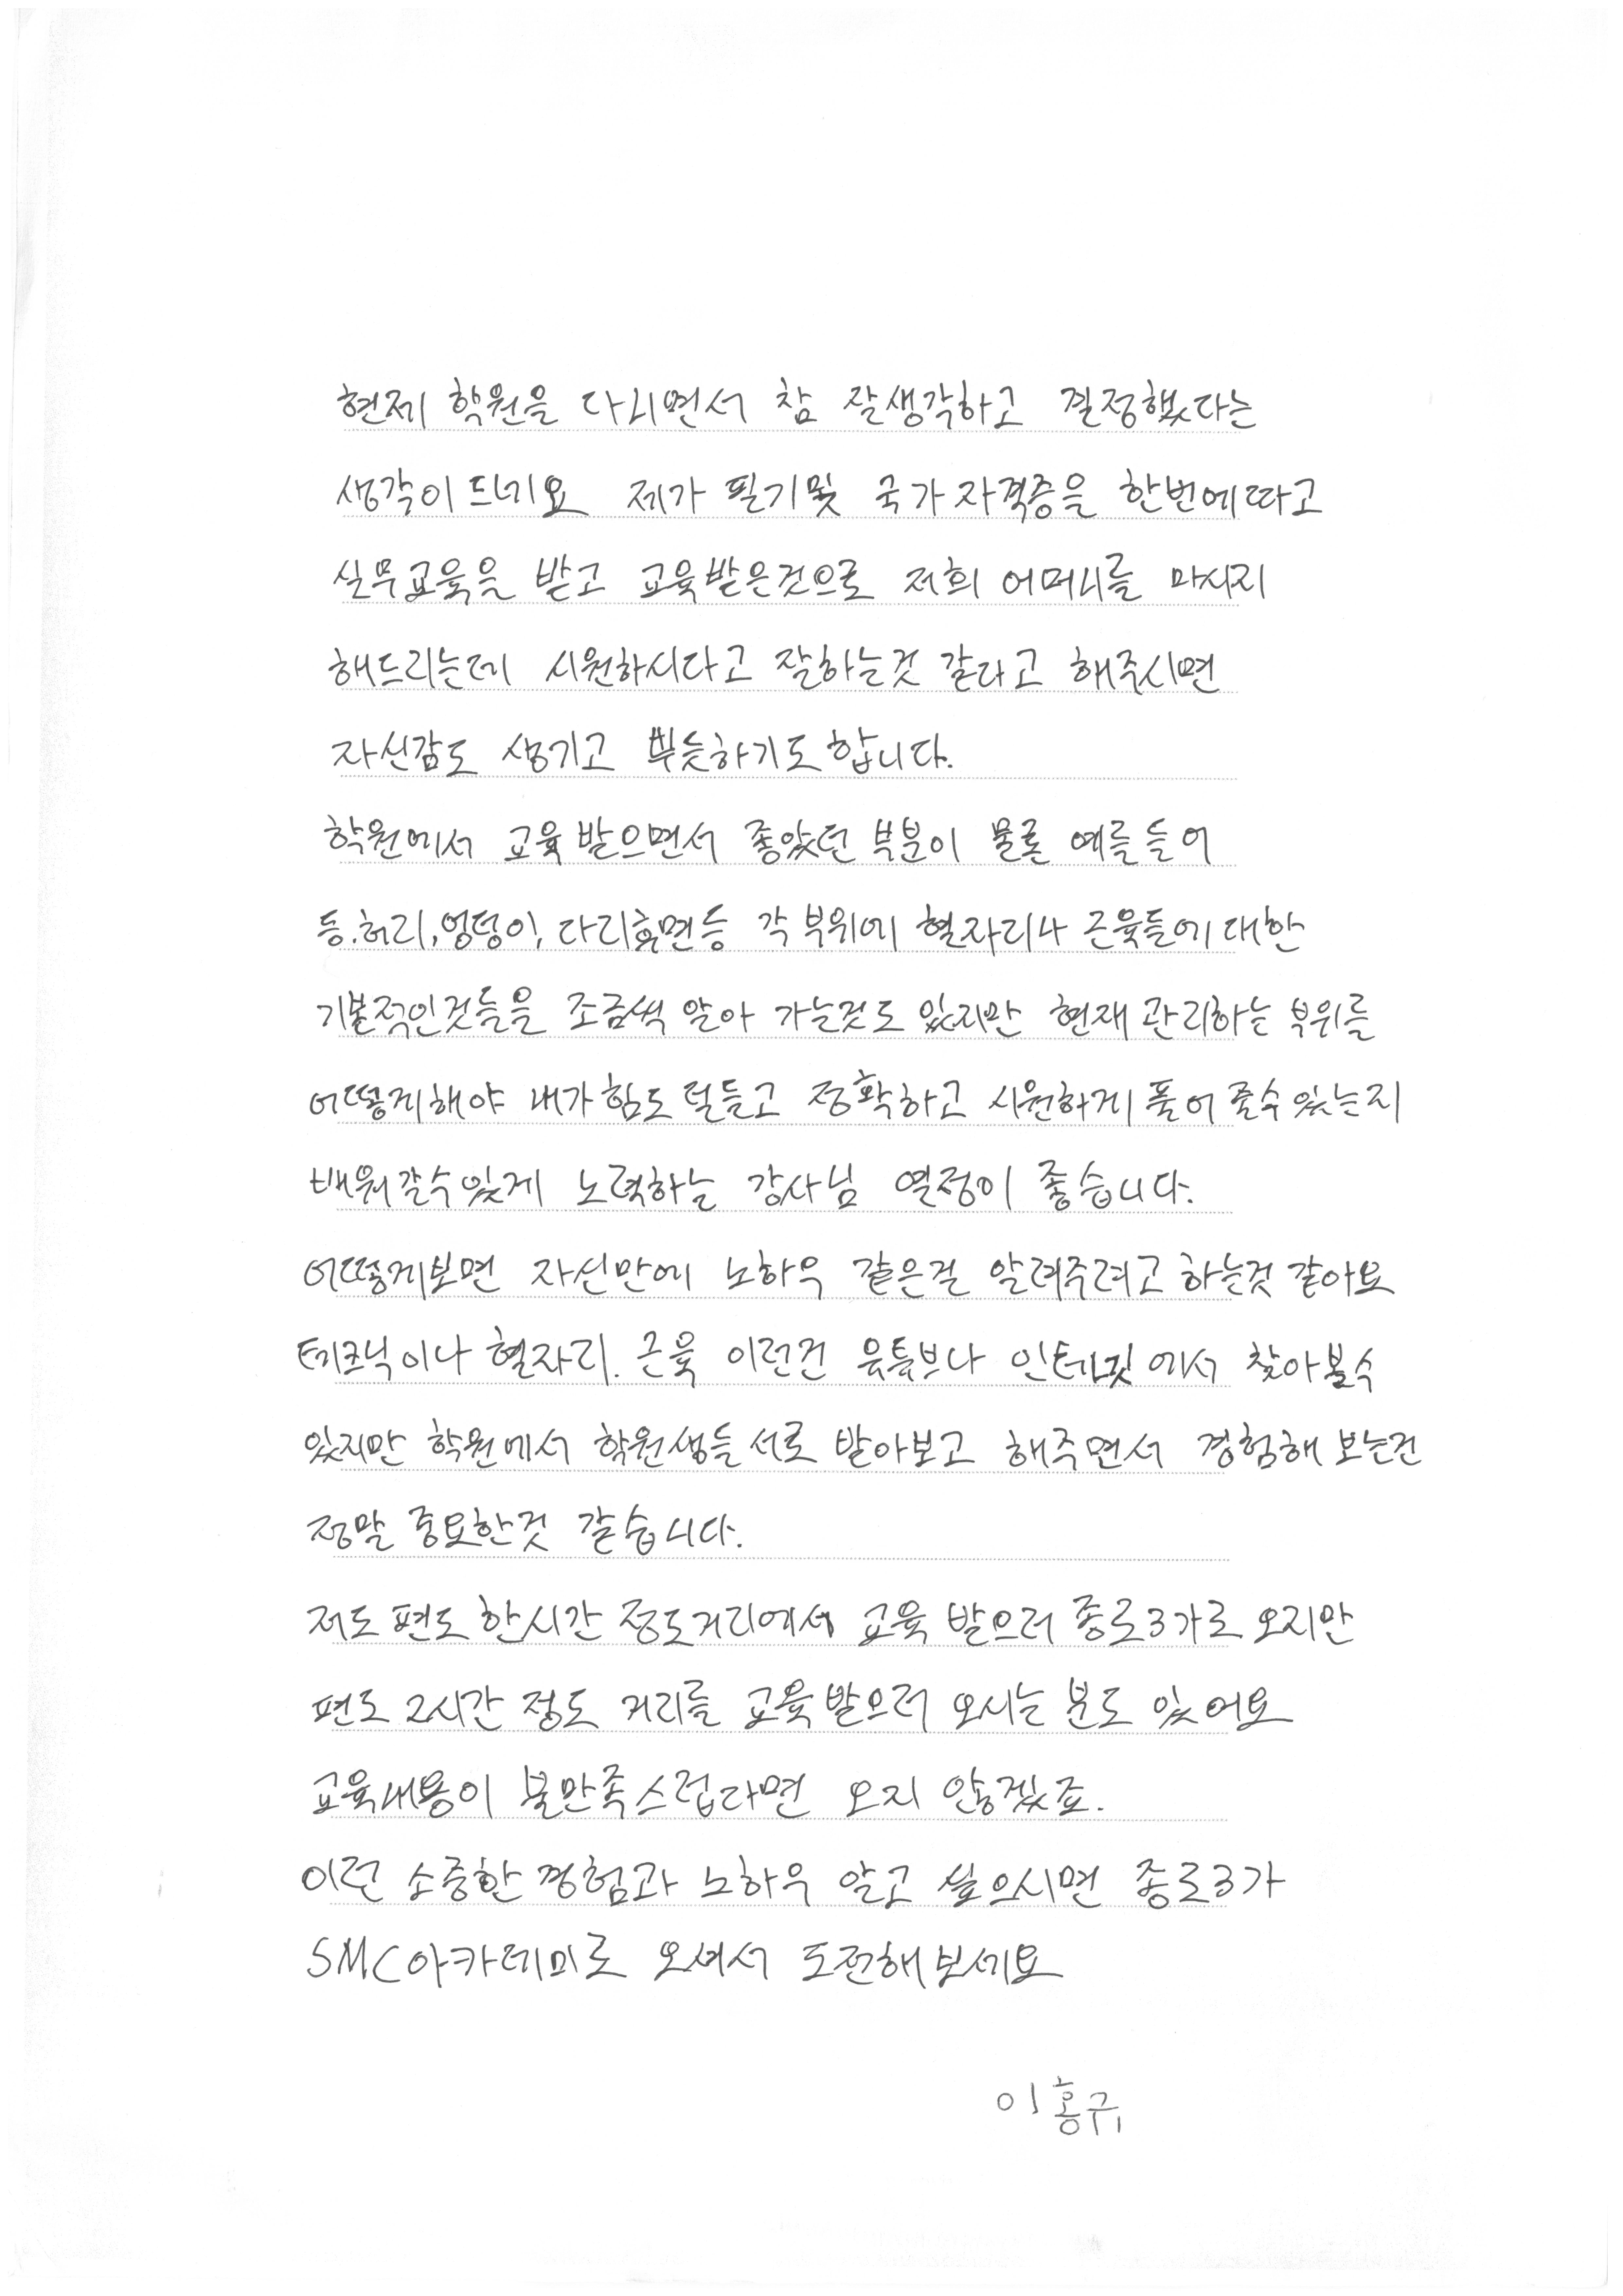 현제 학원을 다니면서 참 잘생각하고 결정했다는
생각이 드네요 제가 필기및 국가자격증을 한번에따고
실무교육을 받고 교육받은것으로 저희 어머니를 마사지
해드리는데 시원하시다고 잘하는것 같다고 해주시면
자신감도 생기고 뿌듯하기도합니다.
학원에서 교육 받으면서 좋았던 부분이 물론 예를들어
등.허리,엉덩이, 다리후면등 각 부위에 혈자리나 근육들에대한
기본적인것들을 조금씩 알아 가는것도 있지만 현재 관리하는 부위를
어떻게해야 내가힘도 덜들고 정확하고 시원하게 풀어 줄수있는지
배워갈수있게 노력하는 강사님 열정이 좋습니다.
어떻게보면 자신만에 노하우 같은걸 알려주려고 하는것 같아요
테크닉이나 혈자리. 근육 이런건 유튜브나 인터넷에서 찾아볼수
있지만 학원에서 학원생들 서로 받아보고 해주면서 경험해 보는건
정말 중요한것 같습니다.
저도 편도 한시간 정도거리에서 교육 받으러 종로3가로 오지만
편도 2시간 정도 거리를 교육받으러 오시는 분도 있어요
교육내용이 불만족스럽다면 오지 않겠죠.
이런 소중한 경험과 노하우 알고 싶으시면 종로3가
SMC아카데미로 오셔서 도전해보세요
이홍규